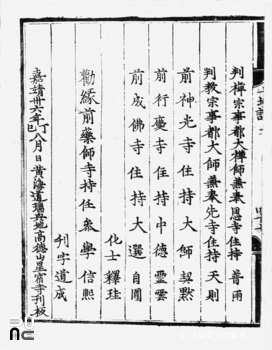 判禪宗事都大禪師兼奉恩寺住持 普雨
判教宗事都大師兼奉先寺住持 天則
前神光寺住持大師 契默
前行慶寺住持中德 靈雲
前成佛寺住持大選 自圓
化士 釋珪
勸緣前藥師寺住持參學 信熙
刊字道成
嘉靖卅六年丁巳八月日黃海道瑞興地高德山星宿寺刊板